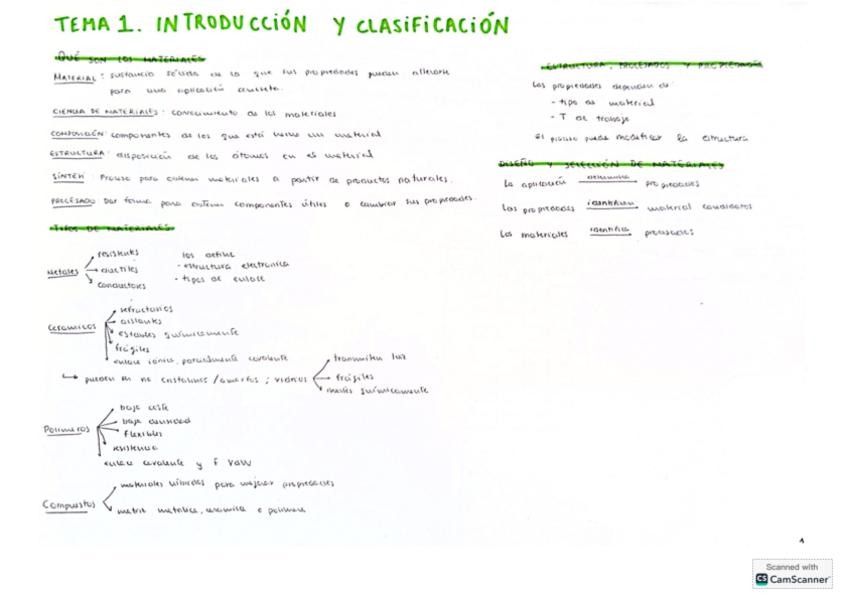 TEMA 1. INTRODUCCIÓN Y CLASIFICACIÓN
QUÉ SON LOS MATERIALES
MATERIAL: sustancia sólida en la que sus propiedades pueden alterarse
para una aplicación concreta.
CIENCIA DE MATERIALES: conocimiento de los materiales
COMPOSICIÓN: componentes de los que está hecho un material
ESTRUCTURA: disposición de los átomos en el material
SÍNTESIS: Proceso para obtener materiales a partir de productos naturales.
PROCESADO: Dar forma para obtener componentes útiles o cambiar sus propiedades.
TIPOS DE MATERIALES
Metales
resistentes
dúctiles
conductores
los define
- estructura electrónica
- tipos de enlace
Cerámicos
refractarios
aislantes
estables químicamente
frágiles
enlace iónico, parcialmente covalente
pueden ser no cristalinos / amorfos; vidrios
transmiten luz
frágiles
inertes químicamente
Polímeros
bajo coste
baja densidad
flexibles
resistencia
enlace covalente y f VdW
Compuestos
materiales híbridos para mejorar propiedades
matriz metálica, cerámica o polímero
ESTRUCTURA, PROCESADOS Y PROPIEDADES
Las propiedades dependen de:
- tipo de material
- T de trabajo
El proceso puede modificar la estructura
DISEÑO Y SELECCIÓN DE MATERIALES
La aplicación determina propiedades
Las propiedades identifican material candidatos
Los materiales identifica procesados
1
Scanned with
CS CamScanner